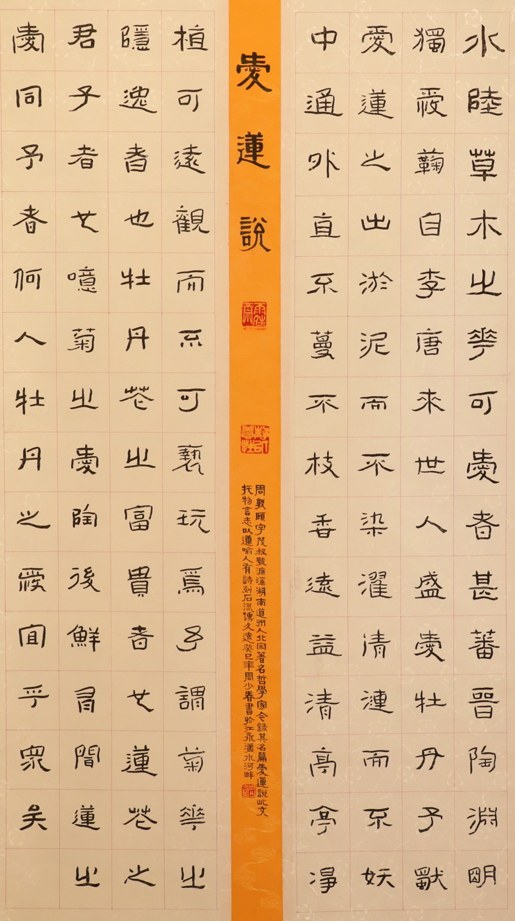 水陸草木之華可愛者甚蕃晉陶淵明
獨愛蘜自李唐來世人盛愛牡丹予獨
愛蓮之出淤泥而不染濯清漣而不妖
中通外直不蔓不枝香遠益清亭亭淨
愛蓮說
周敦頤字茂叔號濂溪湖南道州人北宋著名哲學家今錄其名篇愛蓮說此文
托物言志以蓮喻人有詩刻石流傳久遠癸巳年周少春書於江永瀟水河畔
植可遠觀而不可褻玩焉予謂菊華之
隱逸者也牡丹花之富貴者也蓮花之
君子者也噫菊之愛陶後鮮有聞蓮之
愛同予者何人牡丹之愛宜乎眾矣